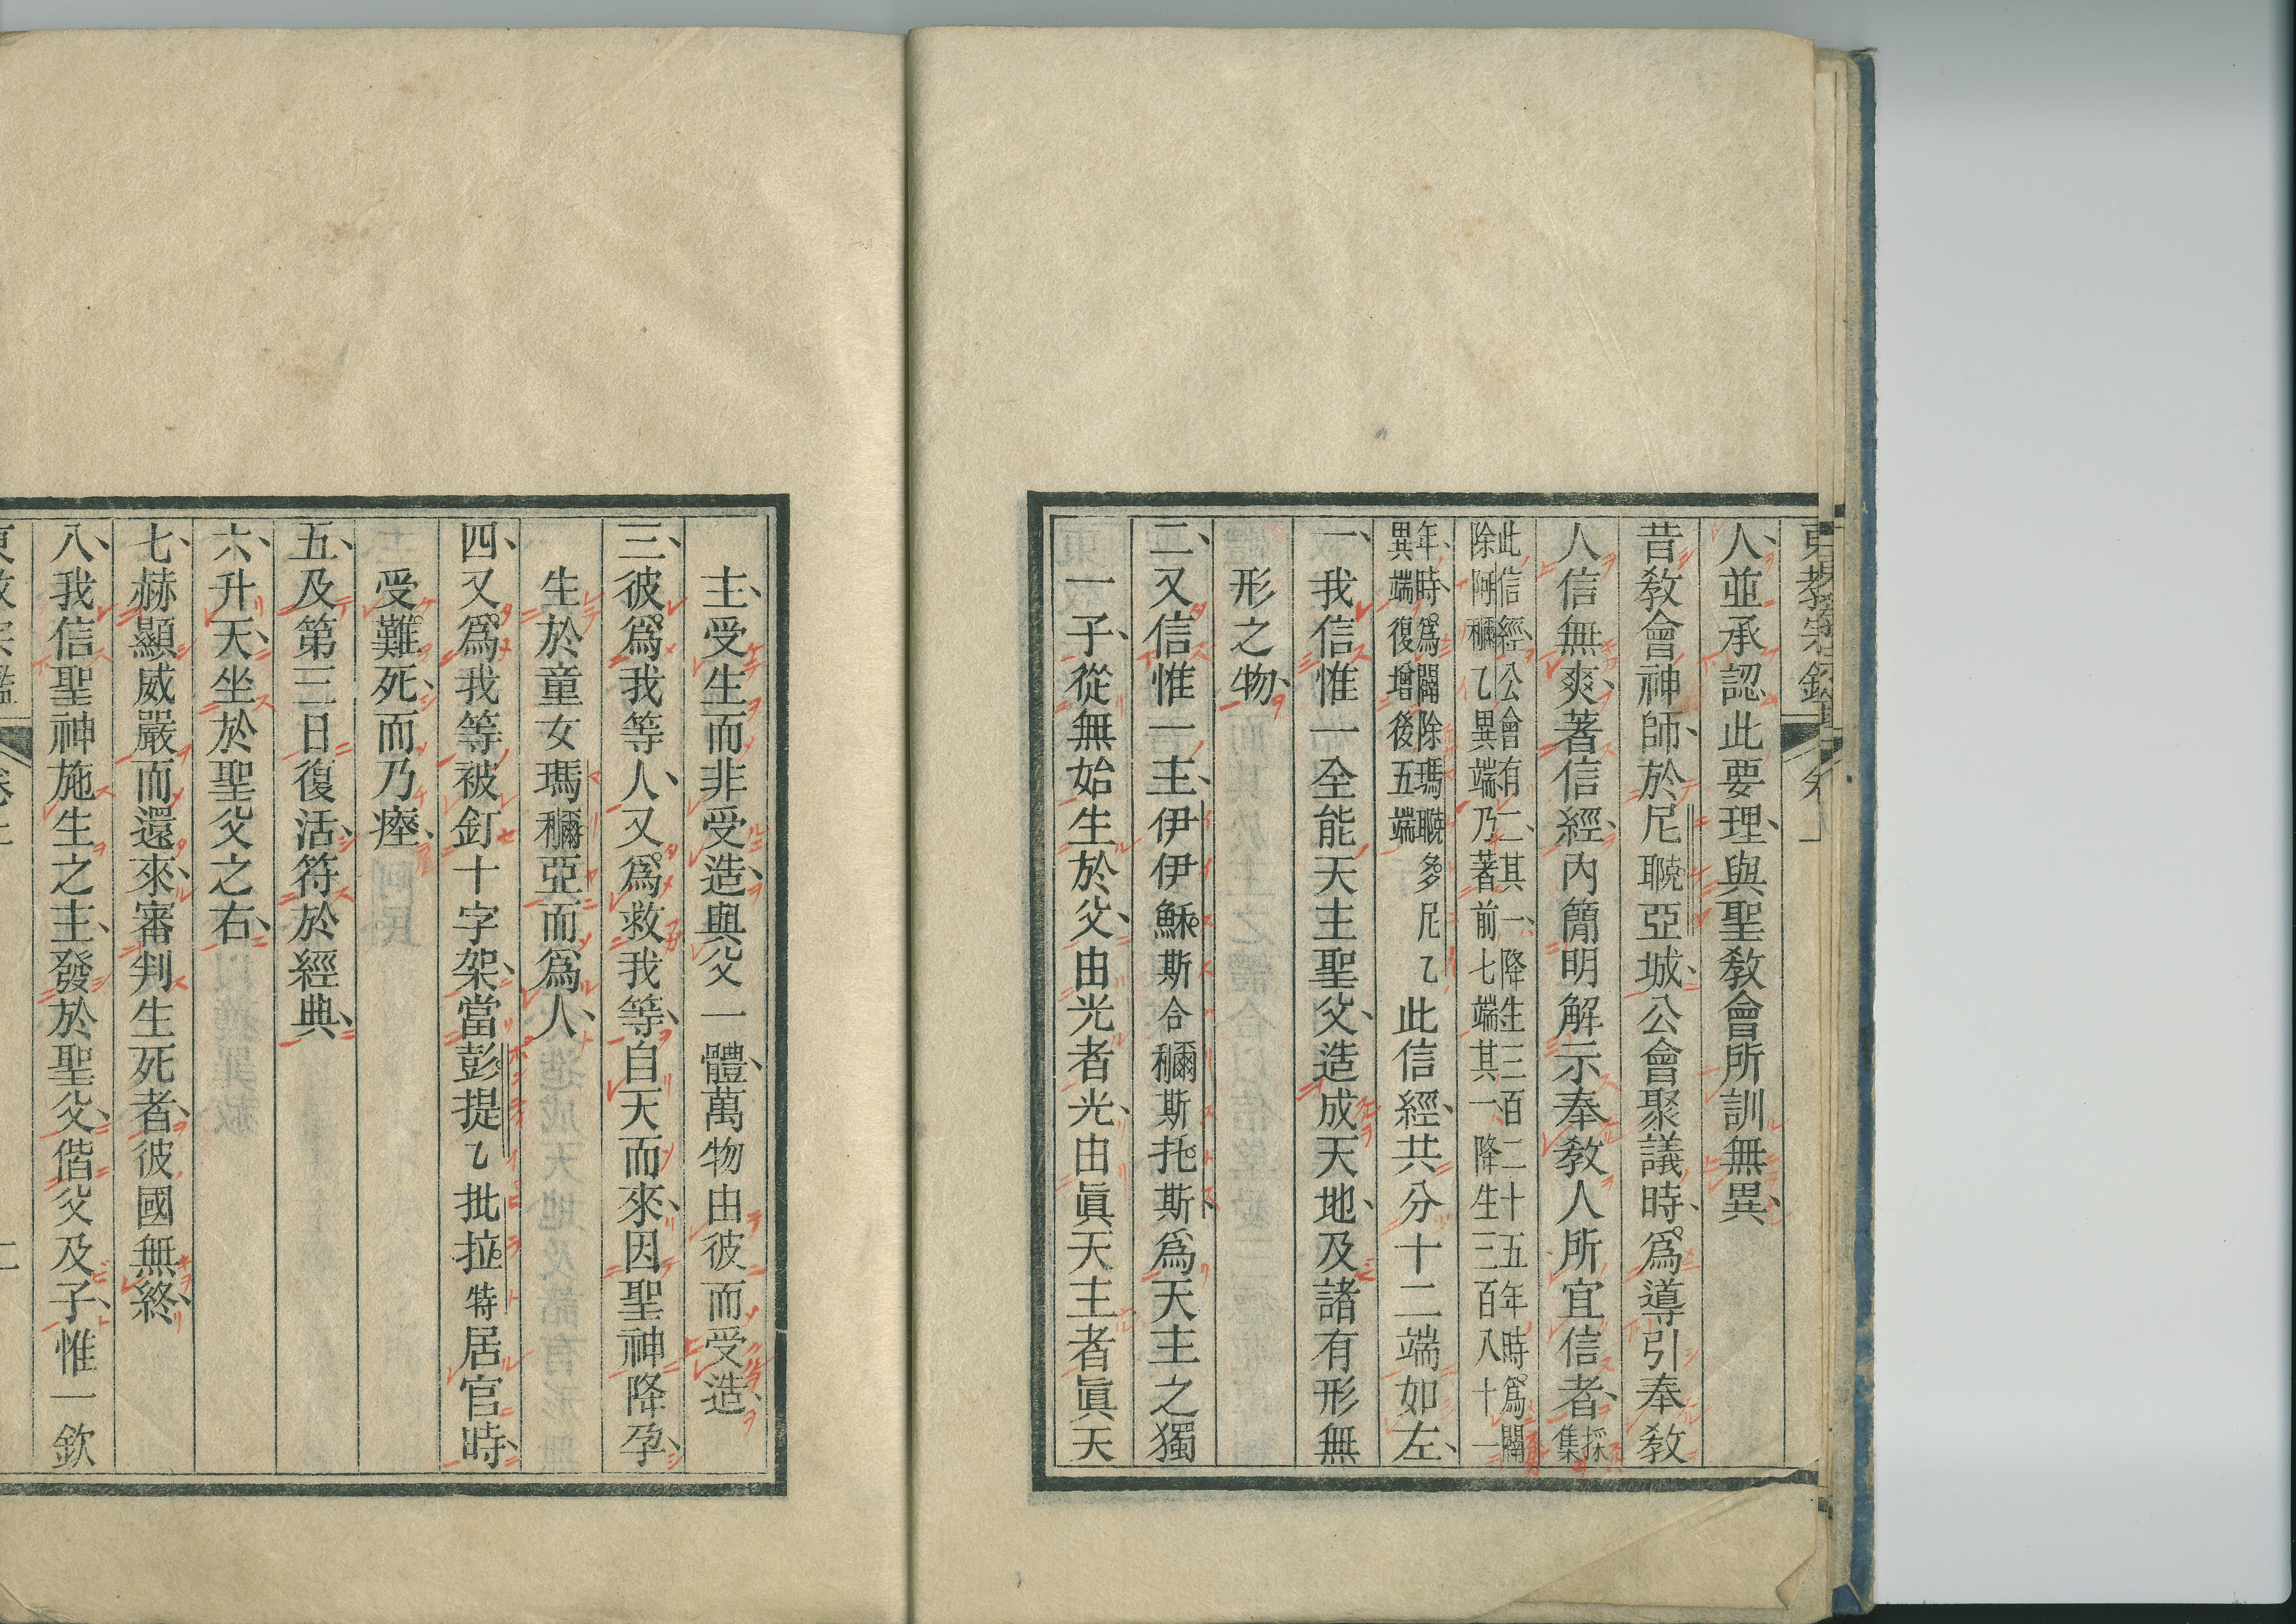 東教宗鑑 卷上
人並承認此要理與聖教會所訓無異
昔教會神師於尼聸亞城公會聚議時爲導引奉教
人信無爽著信經內簡明解示奉教人所宜信者採集
此信經公會有二其一降生三百二十五年時爲闢
除阿穪乙異端乃著前七端其一降生三百八十一
年時爲闢除瑪聸多尼乙
異端復增後五端
此信經共分十二端如左
一我信惟一全能天主聖父造成天地及諸有形無
形之物
二又信惟一主伊伊穌斯合穪斯托斯爲天主之獨
一子從無始生於父由光者光由眞天主者眞天
主受生而非受造與父一體萬物由彼而受造
三彼爲我等人又爲救我等自天而來因聖神降孕
生於童女瑪穪亞而爲人
四又爲我等被釘十字架當彭提乙批拉特居官時
受難死而乃瘞
五及第三日復活符於經典
六升天坐於聖父之右
七赫顯威嚴而還來審判生死者彼國無終
八我信聖神施生之主發於聖父偕父及子惟一欽
東教宗鑑 卷上 二